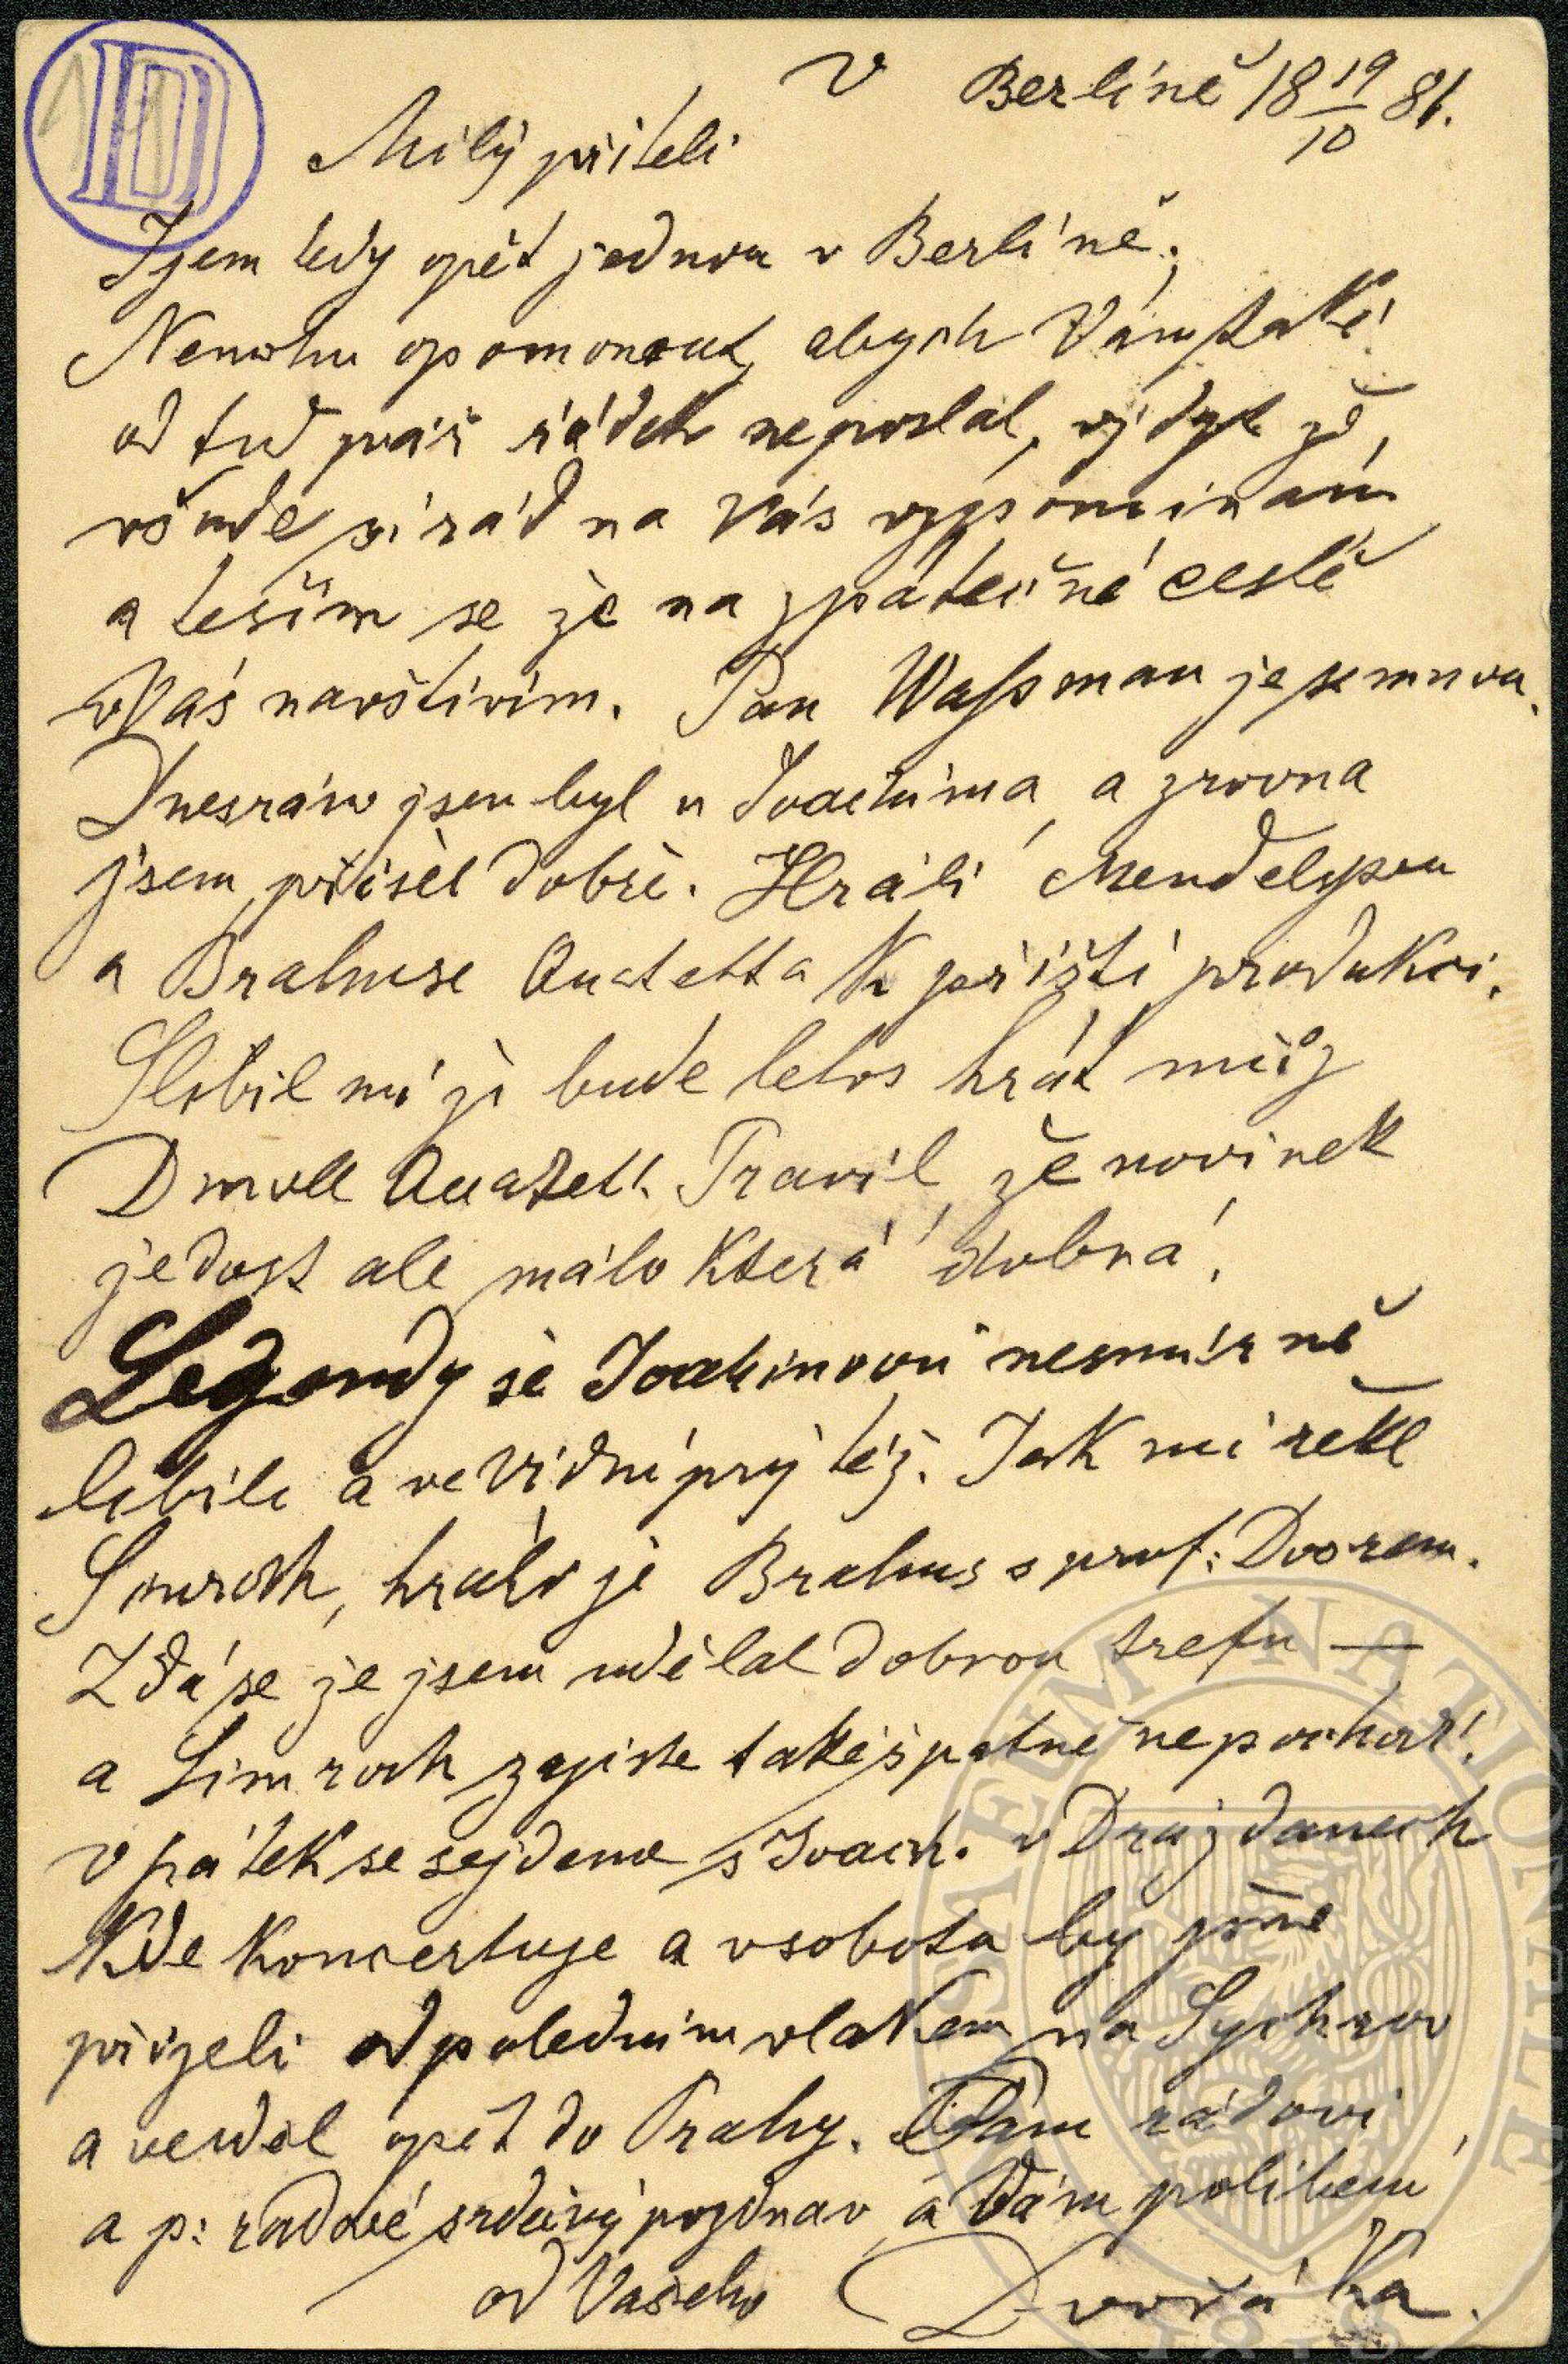 V Berlíně 18 19/10 81.
Milý příteli
Jsem tedy opět jednou v Berlíně;
Nemohu opomonout, abych Vám také
od tud pár řádek neposlal, vždyt že
všude si rád na Vás vzpomínám
a tešim se že na zpáteční cestě
Vás navštívím. Pan Wassman je semnou.
Dnesráno jsem byl u Joachima a zrovna
jsem přišel dobře. Hráli Mendelssona
a Brahmse Quatetta K příští produkci.
Slíbil mi že bude letos hrát můj
D moll Quatett. Pravil, že novinek
je dost ale málo Která dobrá.
Legendy se Joachimovi nesmírně
líbili a ve Vídni prý též. Jak mi řekl
Simroch, hrál je Brahms s prof: Doorem.
Zdá se že jsem udělal dobrou trefu —
a Simroch zajiste také špatně nepochodí.
V pátek se sejdeme s Joach. v Drážďanech
Kde Koncertuje a v sobotu by jsme
přijeli odpoledním vlakem na Sychrov
a večer opět do Prahy. Pánu rádovi
a p: radové srdečný pozdrav a Vám políbení
od Vašeho Dvořáka.
MUSAEUM NATIONALE
1818